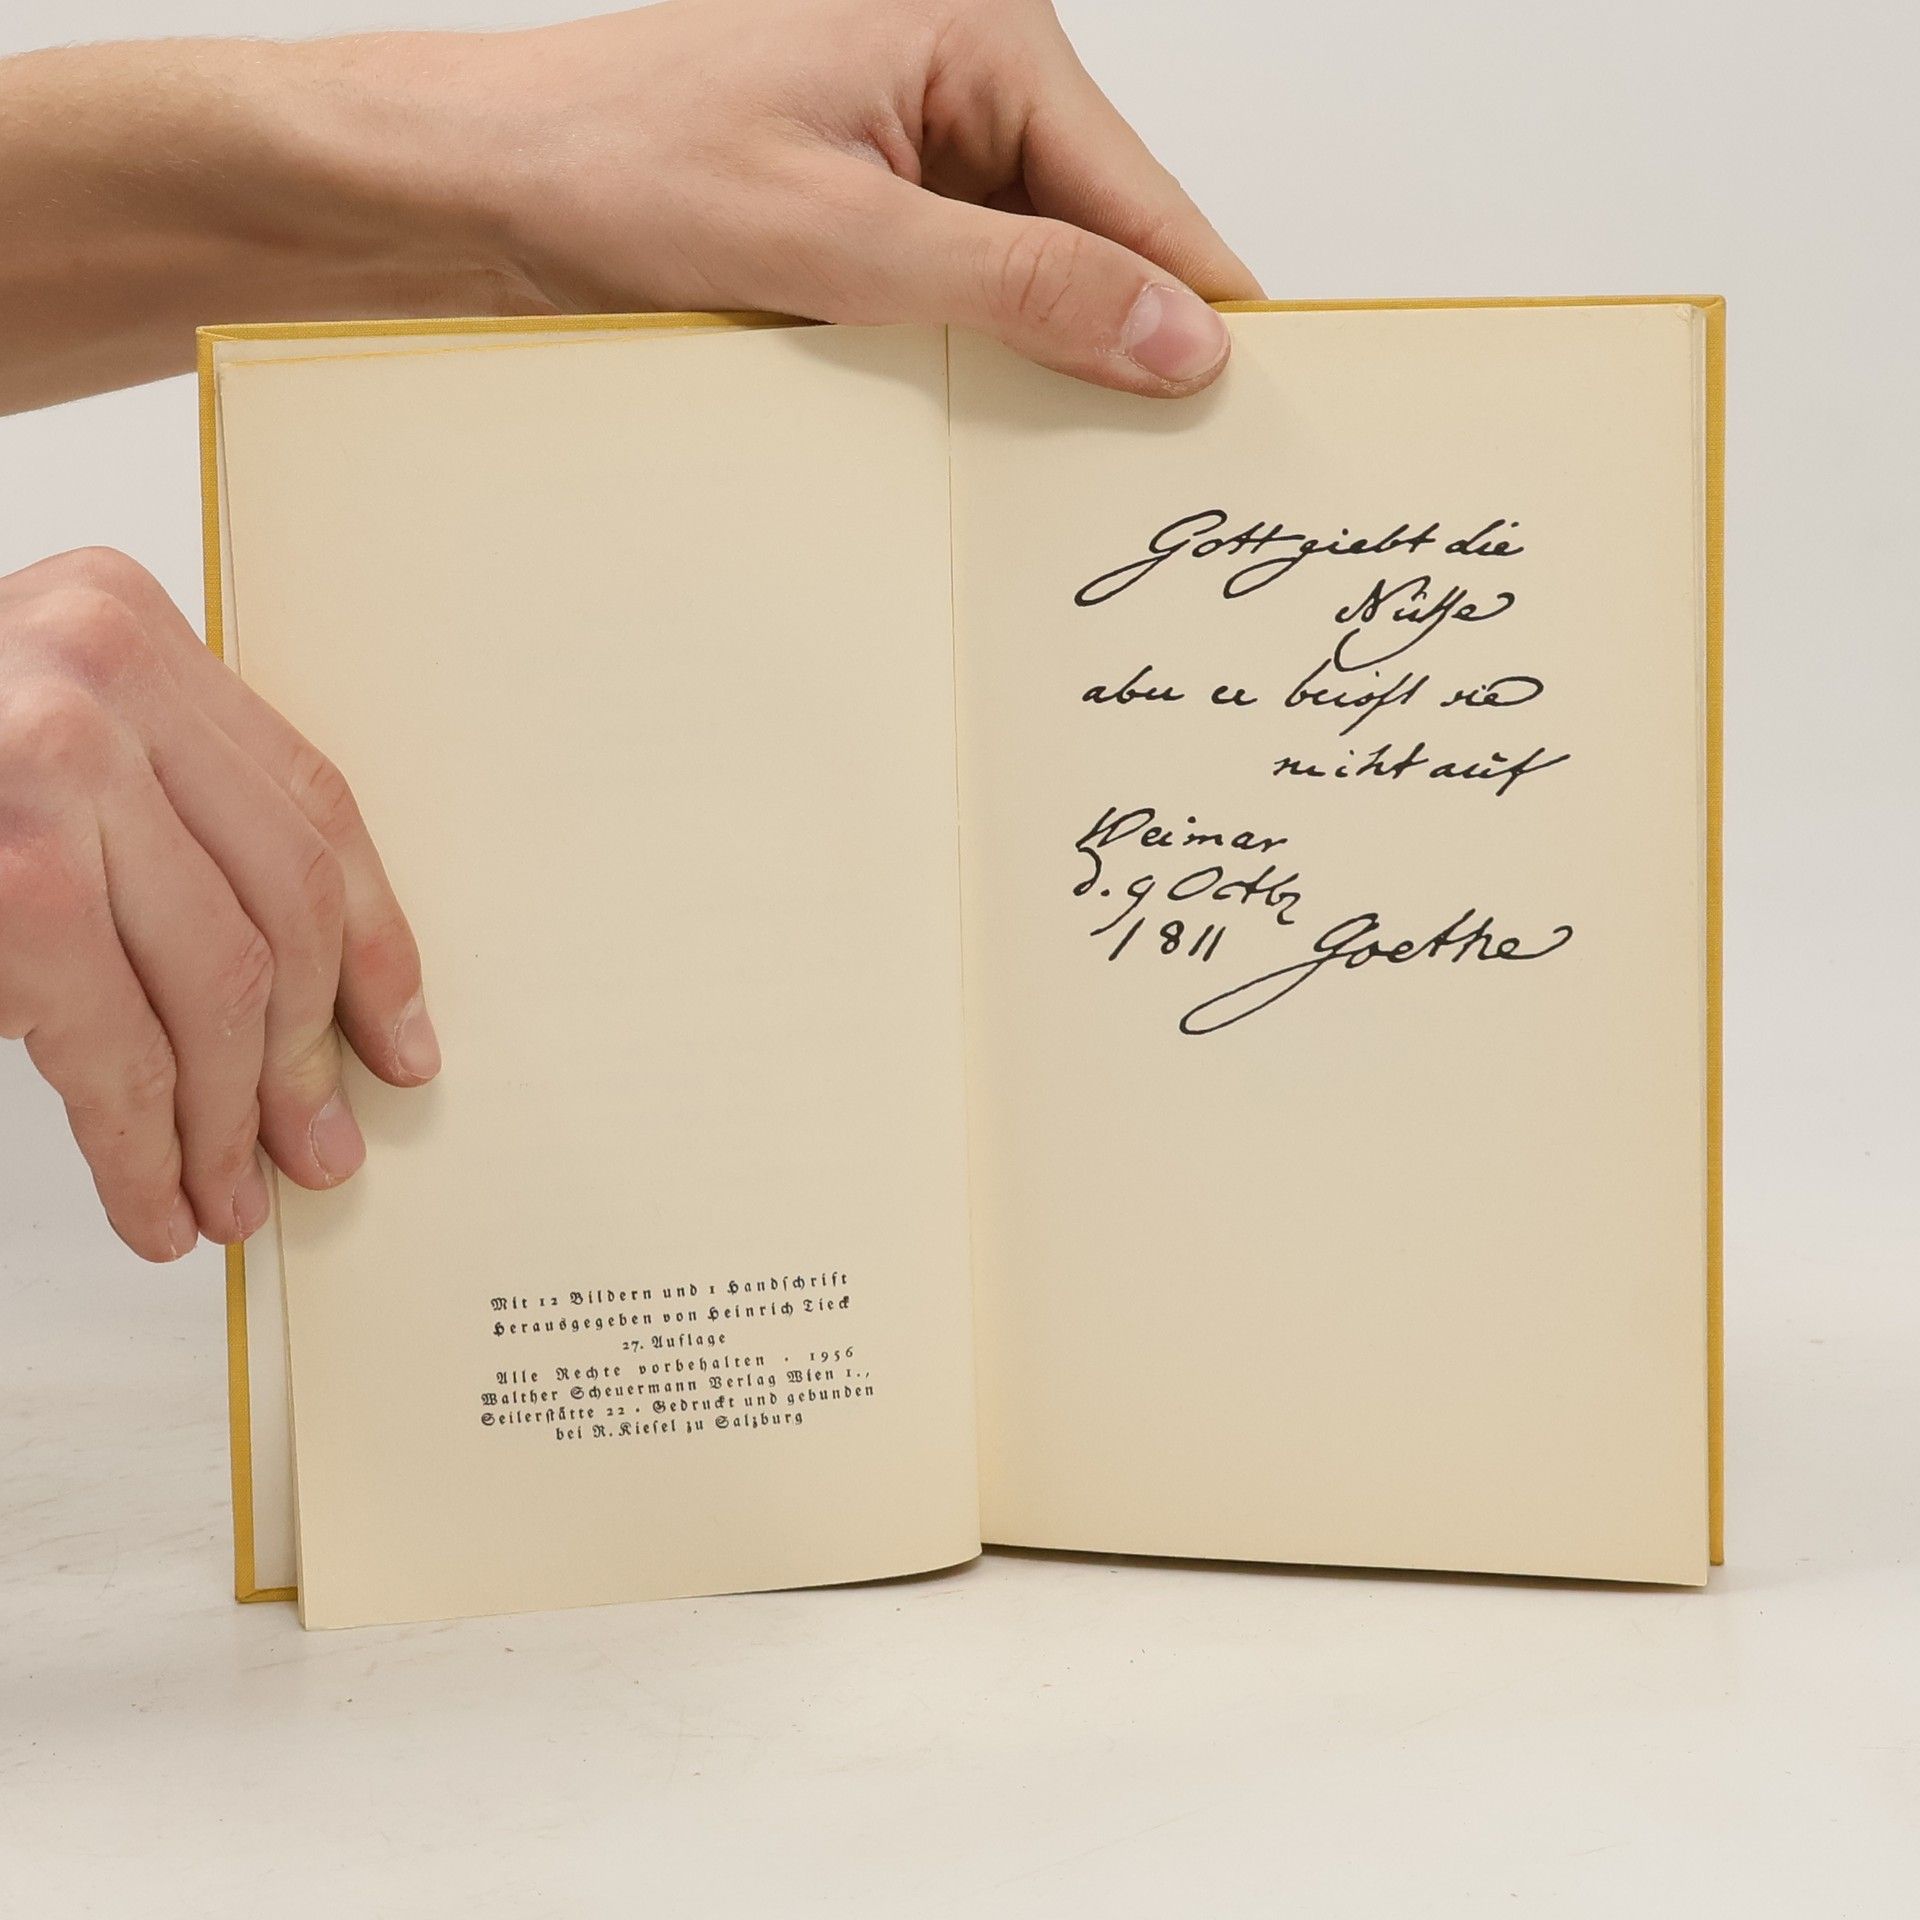 Mit 12 Bildern und 1 Handſchrift
Herausgegeben von Heinrich Tieck
27. Auflage
Alle Rechte vorbehalten . 1956
Walther Scheuermann Verlag Wien 1.,
Seilerſtätte 22 . Gedruckt und gebunden
bei R. Kieſel zu Salzburg
Gott giebt die
Nüſse
aber er beisſt sie
nicht auf
Weimar
d. 9 Octbr
1811 Goethe